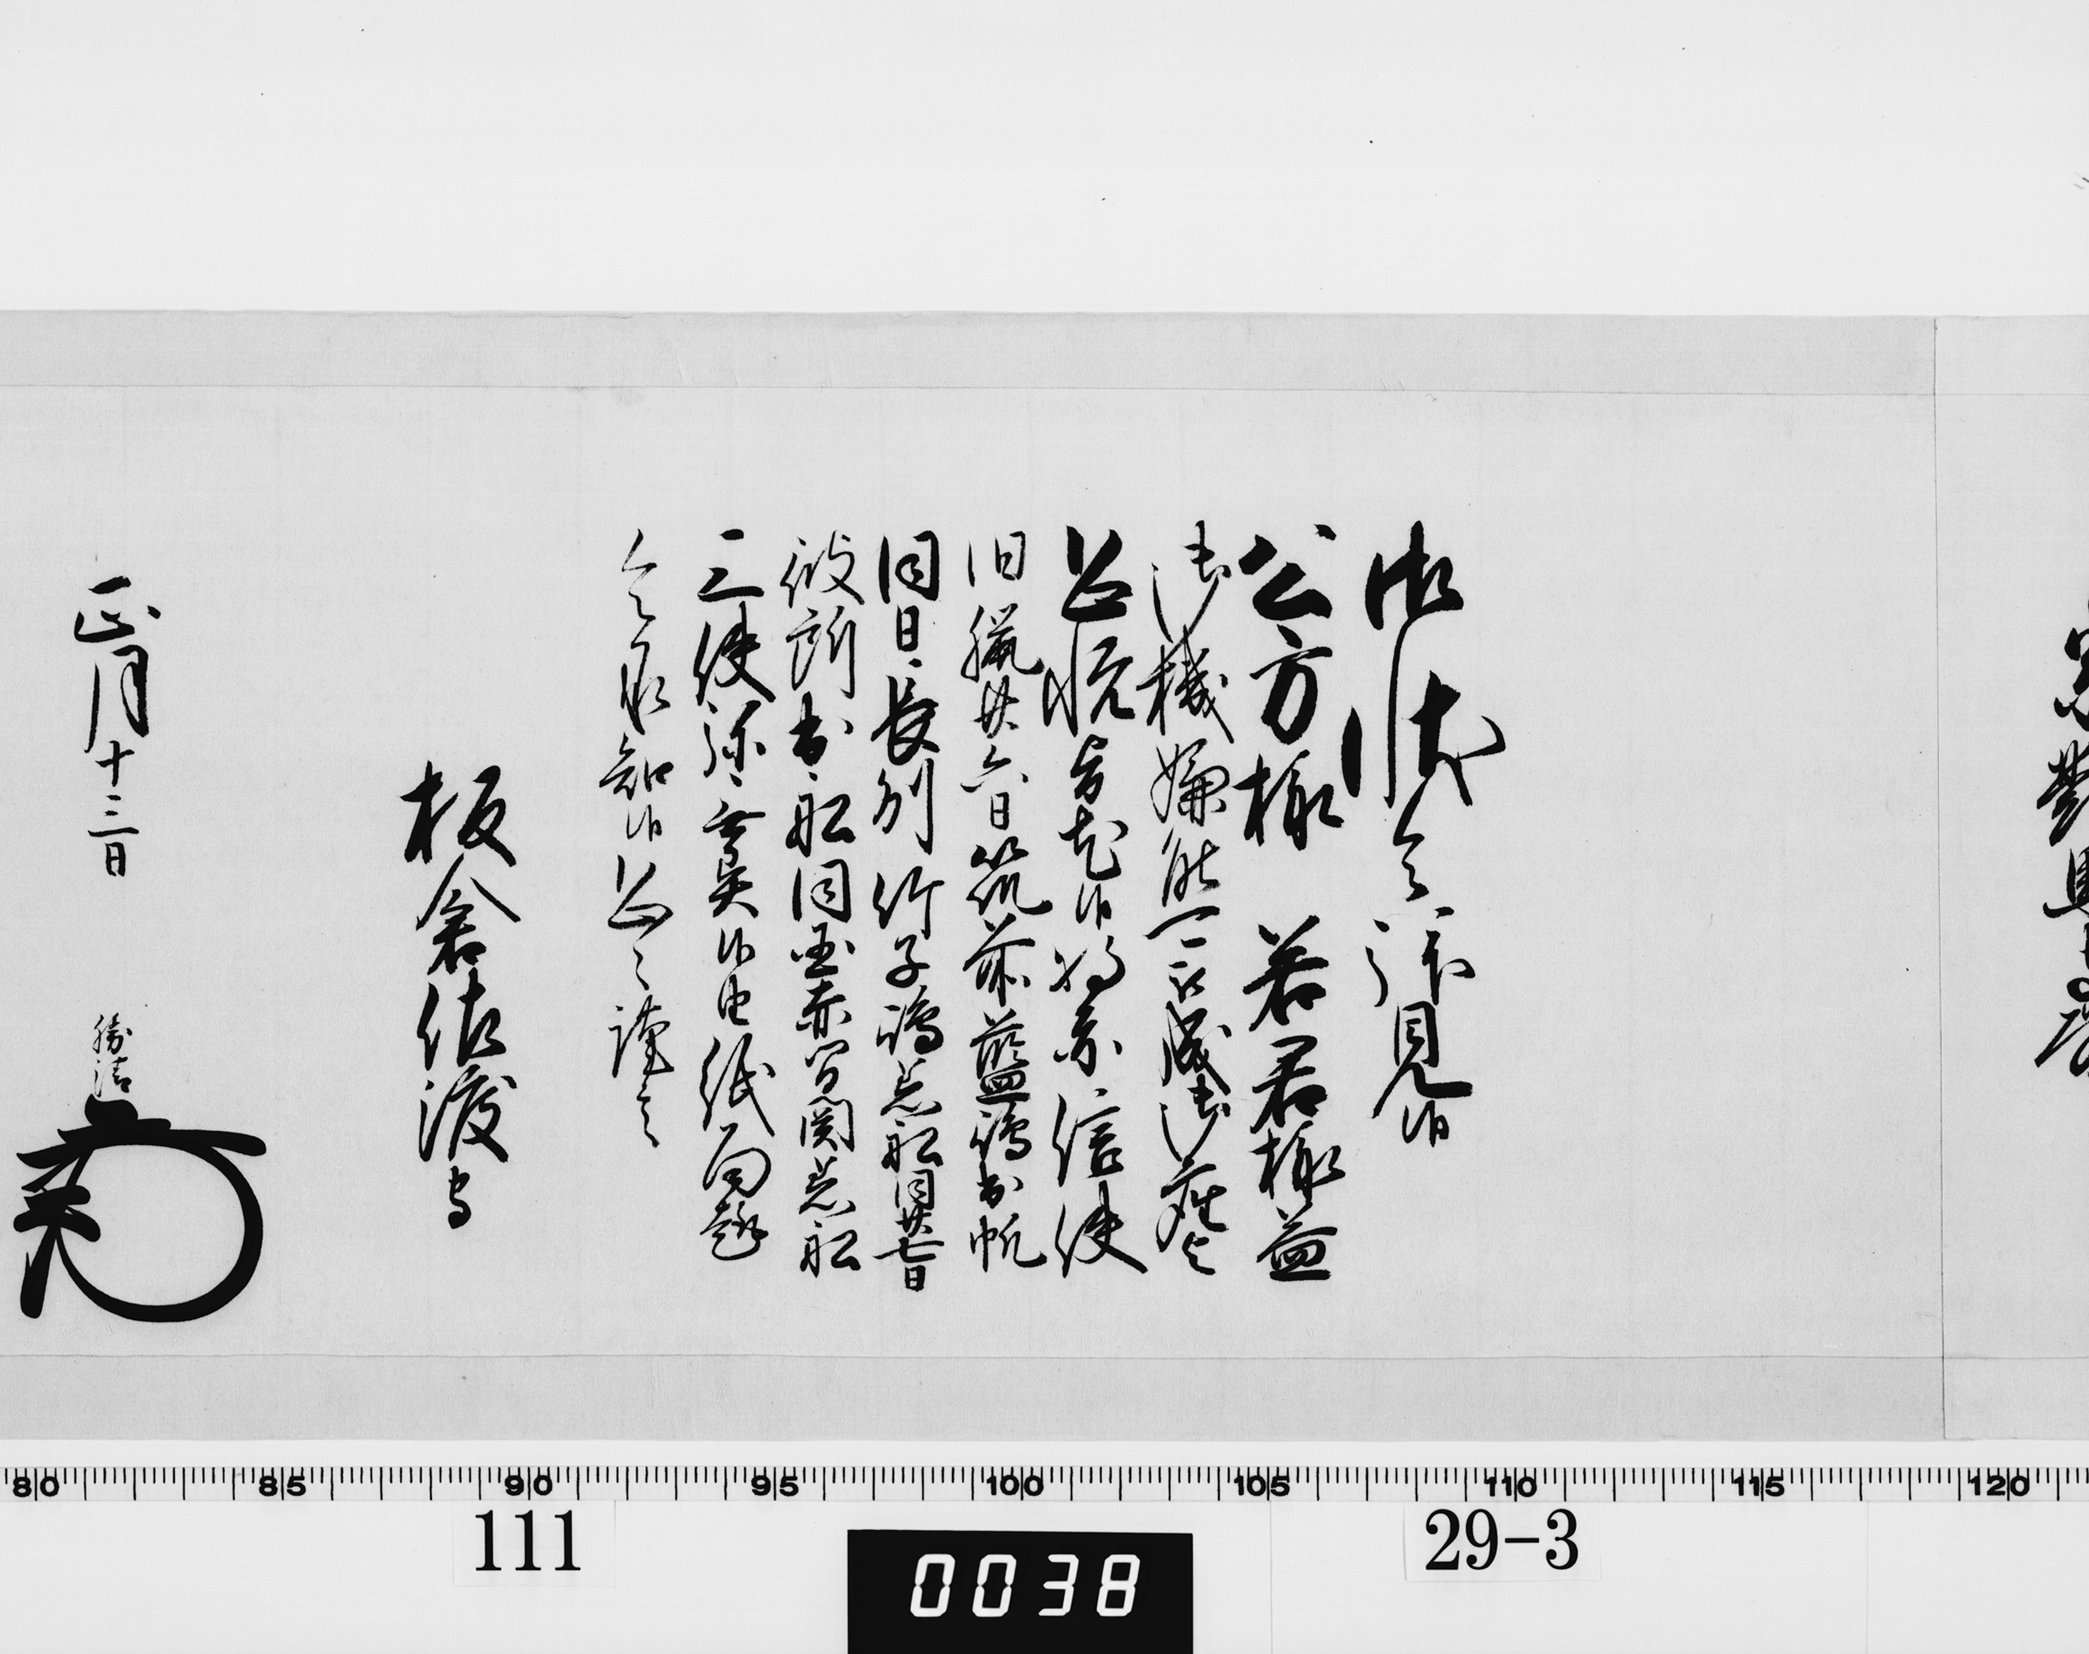 宗對馬守殿
御状令拝見候
公方様 若君様益
御機嫌能可被成御座と
恐悦旨尤候将亦信使
旧臘廿六日筑前藍嶋出帆
同日長州竹子嶋着船同廿七日
彼所出船同国赤間関着船
三使弥無異候由紙面趣
令承知候恐々謹言
板倉佐渡守
正月十三日 勝清
80 85 90 95 100 105 110 115 120
111 0038 29-3